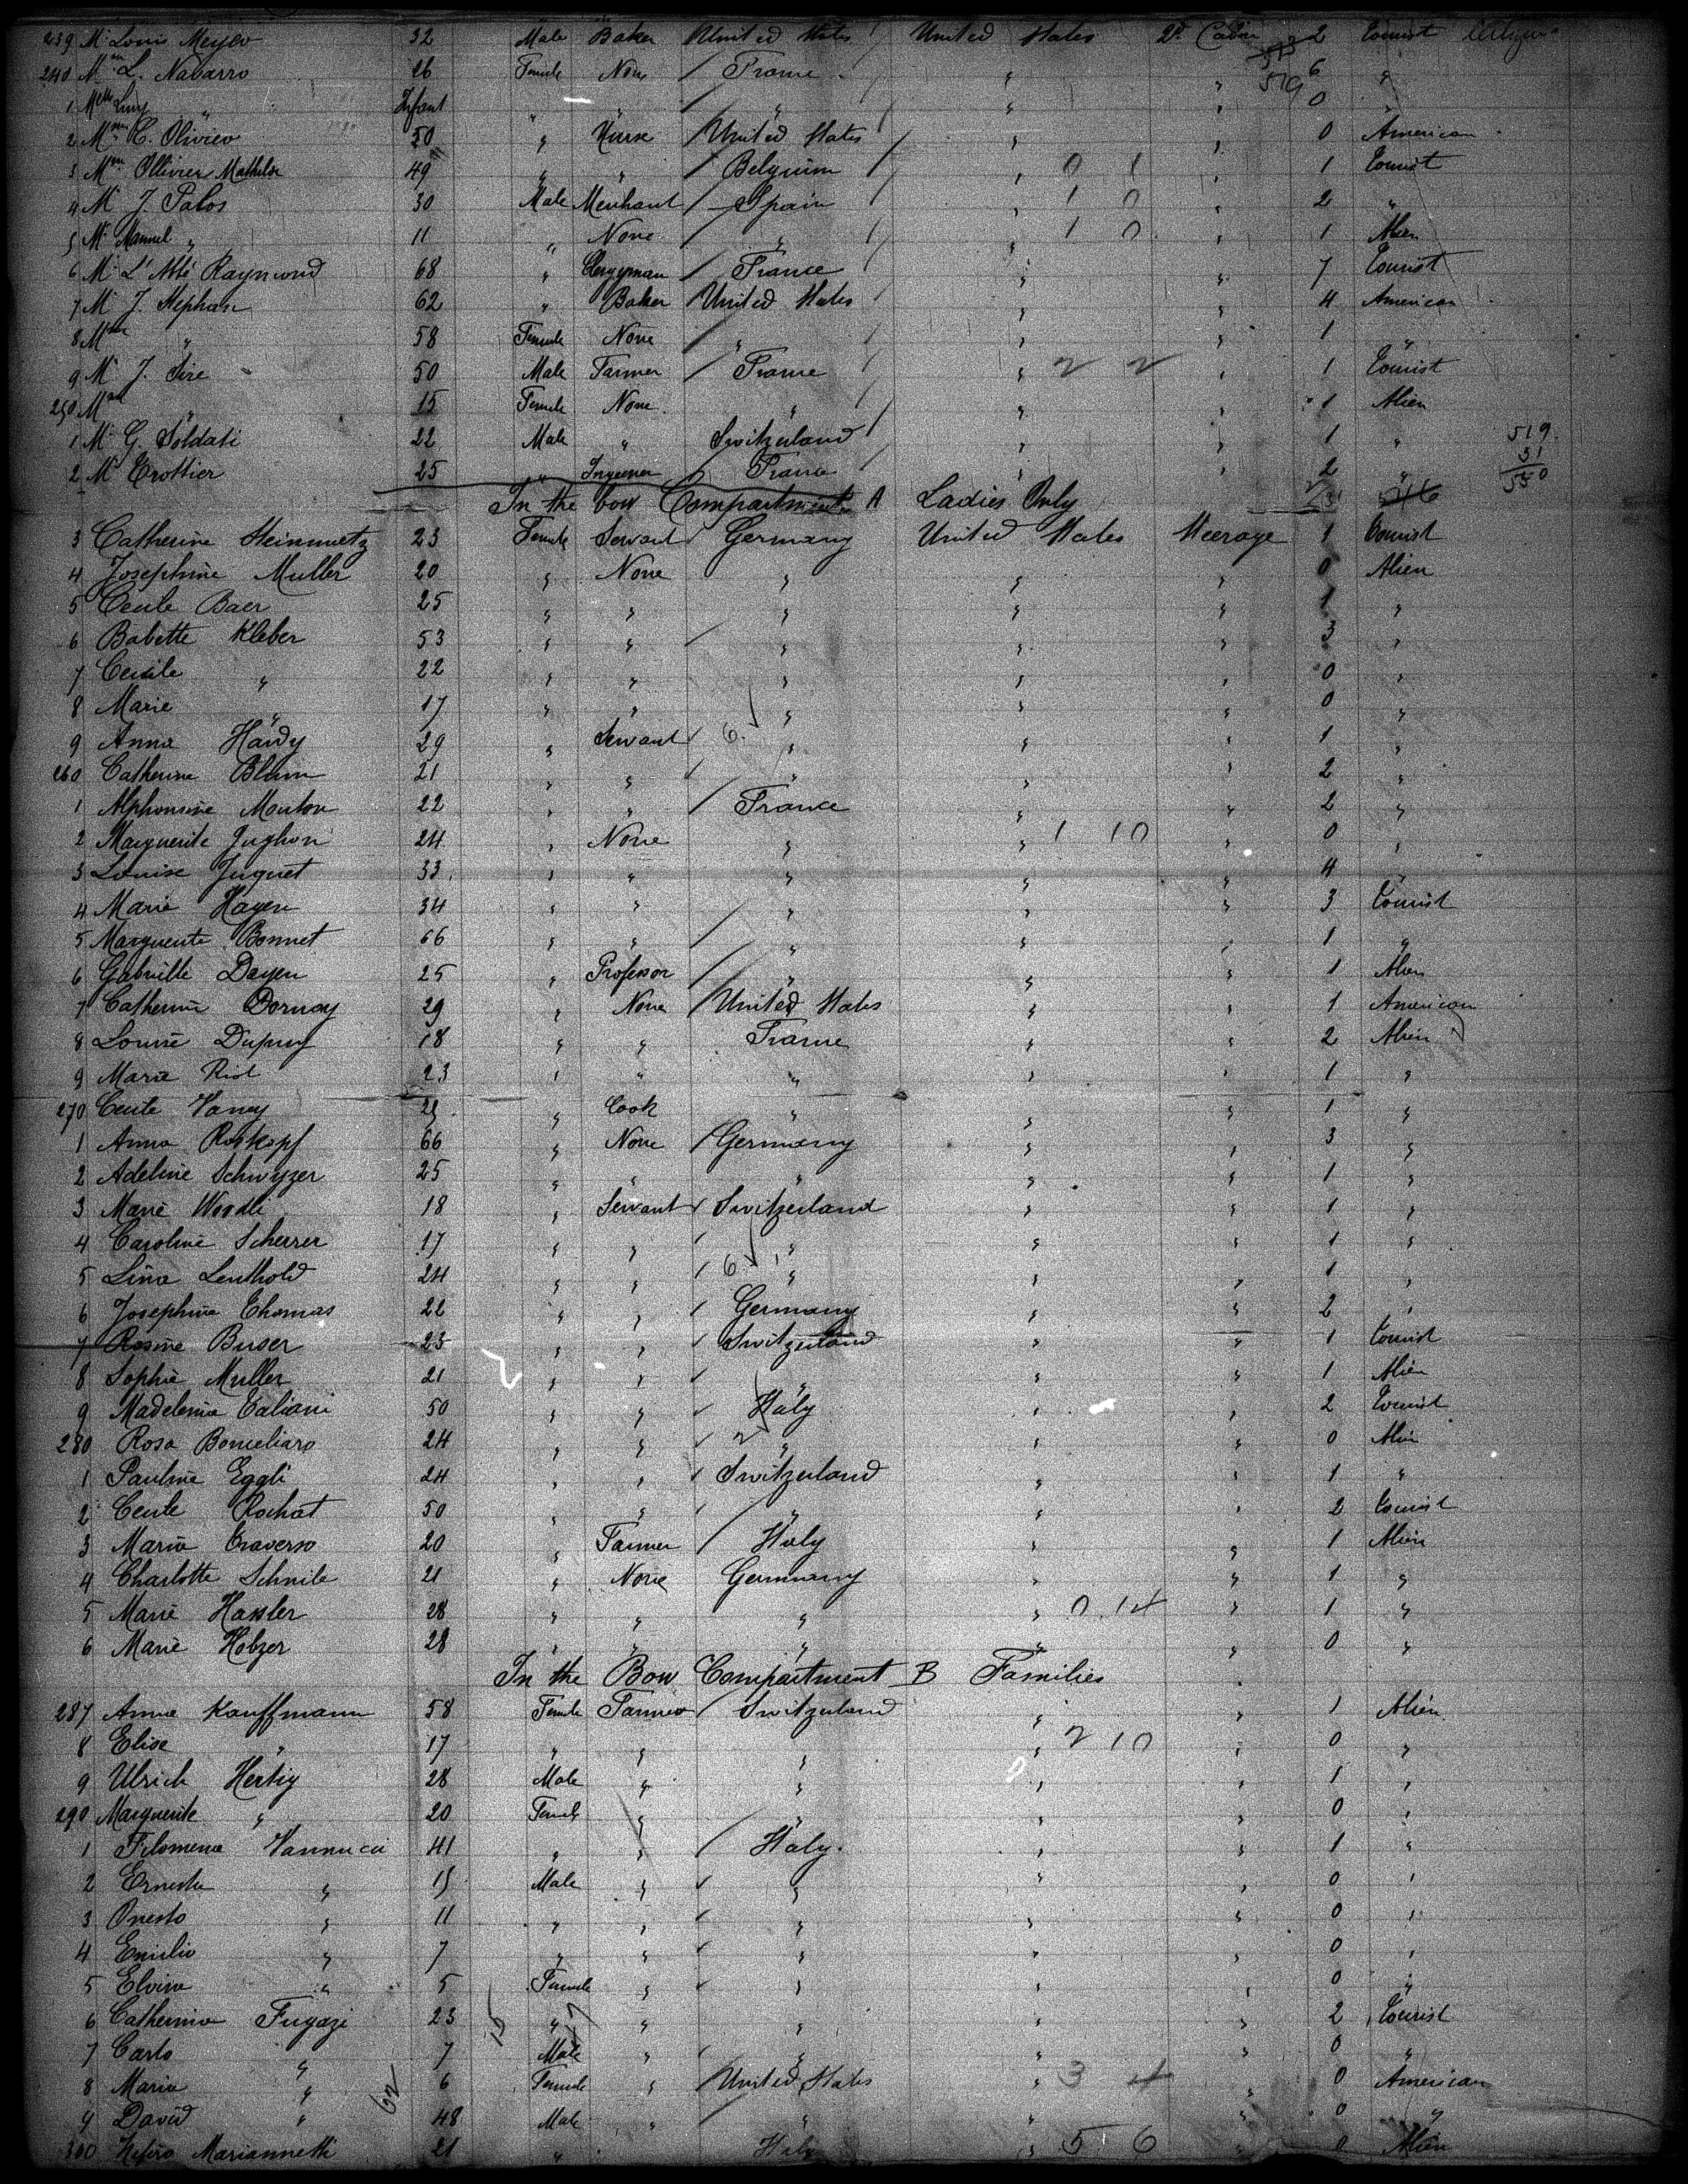 239 Mr Louis Meyer 32 Male Baker United States United States 2d Cabin 2 Tourist
240 Mme L. Navarro 26 Female None France " " 6 "
519
1 Melle Lucy " Infant " " " " " 0 "
2 Mme C. Olivier 50 " Nurse United States " " 0 American
3 Mme Ollivier Mathilde 49 " " Belgium " 0 1 " 1 Tourist
4 Mr J. Palos 30 Male Merchant Spain " 1 0 " 2 "
5 Mr Manuel " 11 " None " " 1 0 " 1 Alien
6 Mr L'Abbé Raymond 68 " Clergyman France " " 7 Tourist
7 Mr J. Stephan 62 " Baker United States " " 4 American
8 Mme " 58 Female None " " " 1 "
9 Mr J. Sire 50 Male Farmer France " 2 2 " 1 Tourist
250 " 15 Female None " " " 1 Alien
1 Mr G. Soldati 22 Male " Switzerland " " 1 " 519
2 Mr Trottier 25 " France " " 2 " 31
550
In the bow Compartment A Ladies Only
3 Catherine Steinmetz 23 Female Servant Germany United States Steerage 1 Tourist
4 Josephine Muller 20 " None " " " 0 Alien
5 Cecile Baer 25 " " " " " 1 "
6 Babette Kleber 53 " " " " " 3 "
7 Cecile " 22 " " " " " 0 "
8 Marie " 17 " " " " " 0 "
9 Anna Hardy 29 " Servant 6 " " " 1 "
260 Catherine Blum 21 " " " " " 2 "
1 Alphonsine Mouton 22 " " France " " 2 "
2 Marguerite Jughon 24 " None " " 1 10 " 0 "
3 Louise Juguet 33 " " " " " 4 "
4 Marie Hayen 34 " " " " " 3 Tourist
5 Marguerite Bonnet 66 " " " " " 1 "
6 Gabrielle Dayen 25 " Professor " " " 1 Alien
7 Catherine Dornoy 29 " None United States " " 1 American
8 Louise Dupuy 18 " " France " " 2 Alien
9 Marie Riol 23 " " " " " 1 "
270 Cecile Vaney " Cook " " " 1 "
1 Anna Roskopf 66 " None Germany " " 3 "
2 Adeline Schwyzer 25 " " " " " 1 "
3 Marie Woodli 18 " Servant Switzerland " " 1 "
4 Caroline Scherrer 17 " " " " " 1 "
5 Lina Leuthold 24 " " 6 " " " 1 "
6 Josephine Thomas 22 " " Germany " " 2 "
7 Rosine Buser 23 " " Switzerland " " 1 Tourist
8 Sophie Muller 21 " " " " " 1 Alien
9 Madelena Taliani 50 " " Italy " " 2 Tourist
280 Rosa Bomeliaro 24 " " 2 " " " 0 Alien
1 Pauline Eggli 24 " " Switzerland " " 1 "
2 Cecile Rochat 50 " " " " " 2 Tourist
3 Maria Traverso 20 " Farmer Italy " " 1 Alien
4 Charlotte Schnile 21 " None Germany " " 1 "
5 Marie Hassler 28 " " " " 0 14 " 1 "
6 Marie Hobzer 28 " " " " " 0 "
In the Bow Compartment B Families
287 Anna Kauffmann 58 Female Farmer Switzerland " " 1 Alien
8 Elise " 17 " " " " 2 10 " 0 "
9 Ulrich Hertig 28 Male " " " " 1 "
290 Marguerite " 20 Female " " " " 0 "
1 Filomena Vannucci 41 " " Italy. " " 1 "
2 Ernesto " 15 Male " " " " 0 "
3 Onesto " 11 " " " " " 0 "
4 Emilio " 7 " " " " " 0 "
5 Elvira " 5 Female " " " " 0 "
6 Catherina Fugazi 23 " " " " " 2 Tourist
7 Carlo " 7 Male " " " " 0 "
8 Maria " 6 Female " United States " 3 4 " 0 American
9 David " 48 Male " " " " 0 "
300 Mariannetti 21 " Italy " 5 6 " 0 Alien